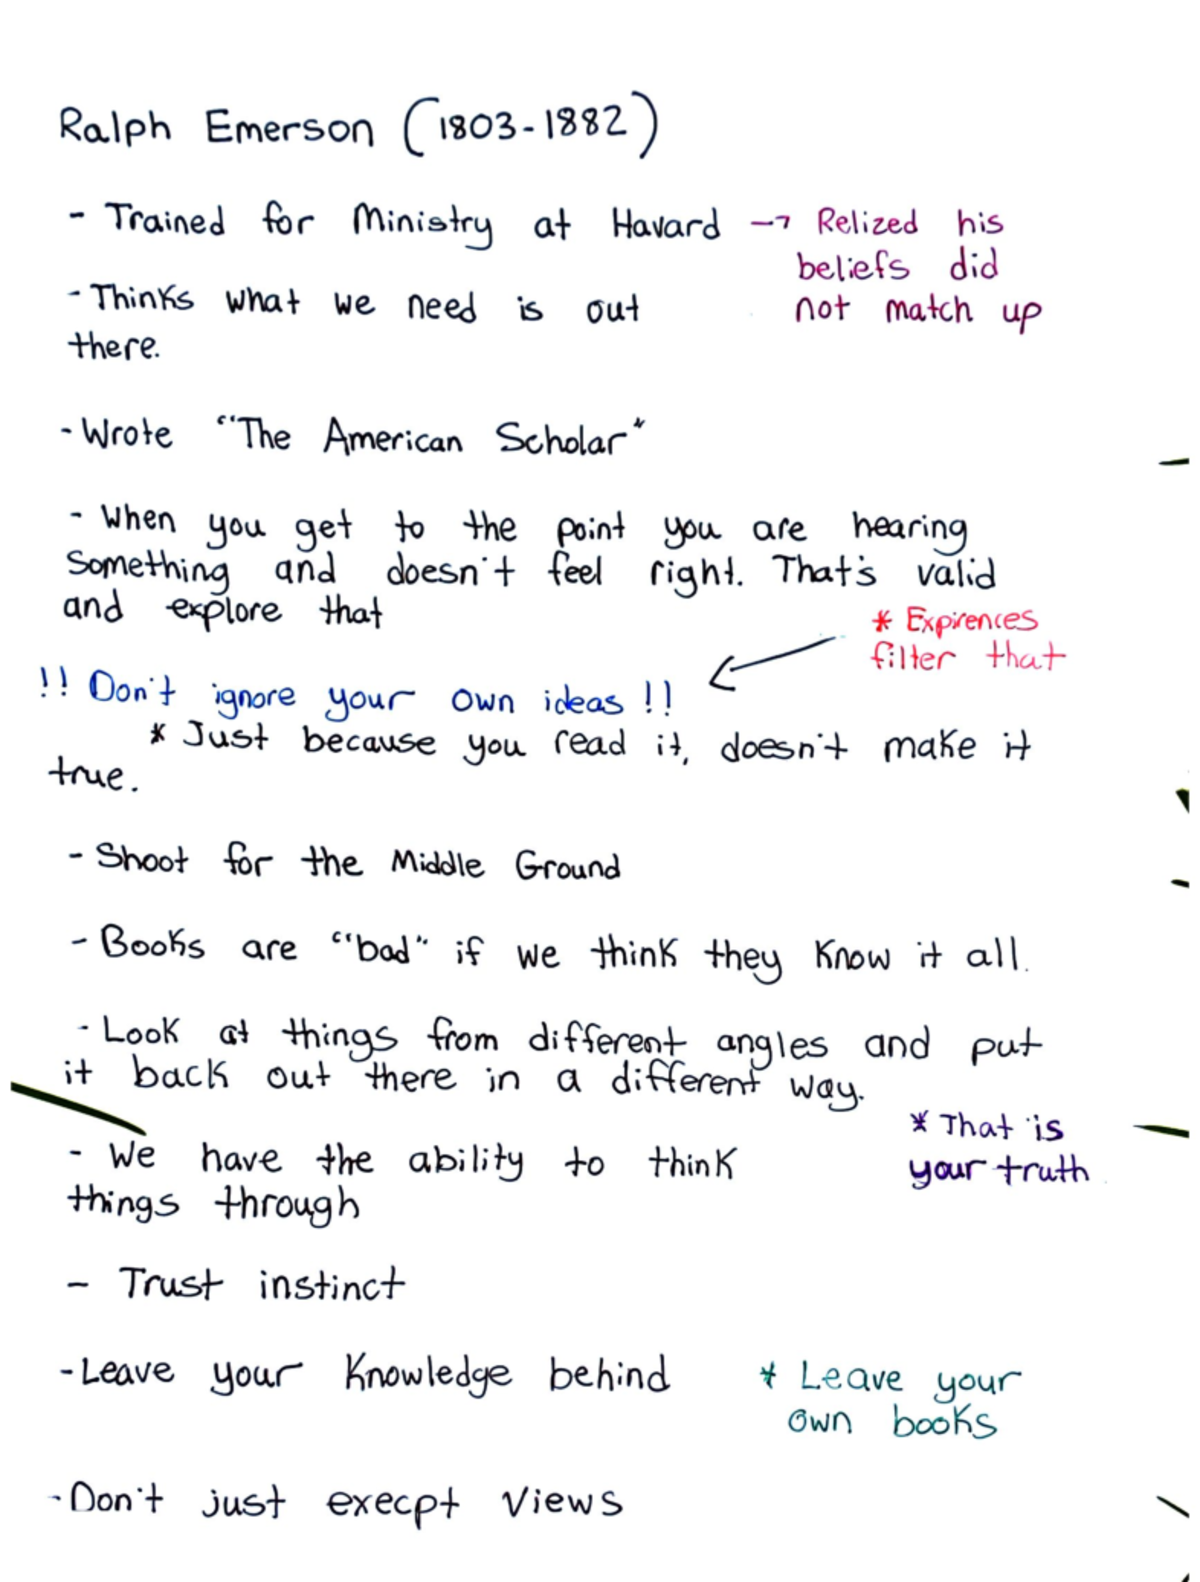 Ralph Emerson (1803-1882)
- Trained for Ministry at Havard → Relized his
beliefs did
not match up
- Thinks what we need is out
there.
- Wrote "The American Scholar"
- When you get to the point you are hearing
Something and doesn't feel right. That's valid
and explore that
* Expirences
filter that
!! Don't ignore your own ideas !!
* Just because you read it, doesn't make it
true.
- Shoot for the Middle Ground
- Books are "bad" if we think they know it all.
- Look at things from different angles and put
it back out there in a different way.
* That is
your truth
- We have the ability to think
things through
- Trust instinct
- Leave your Knowledge behind
* Leave your
own books
- Don't just execpt views